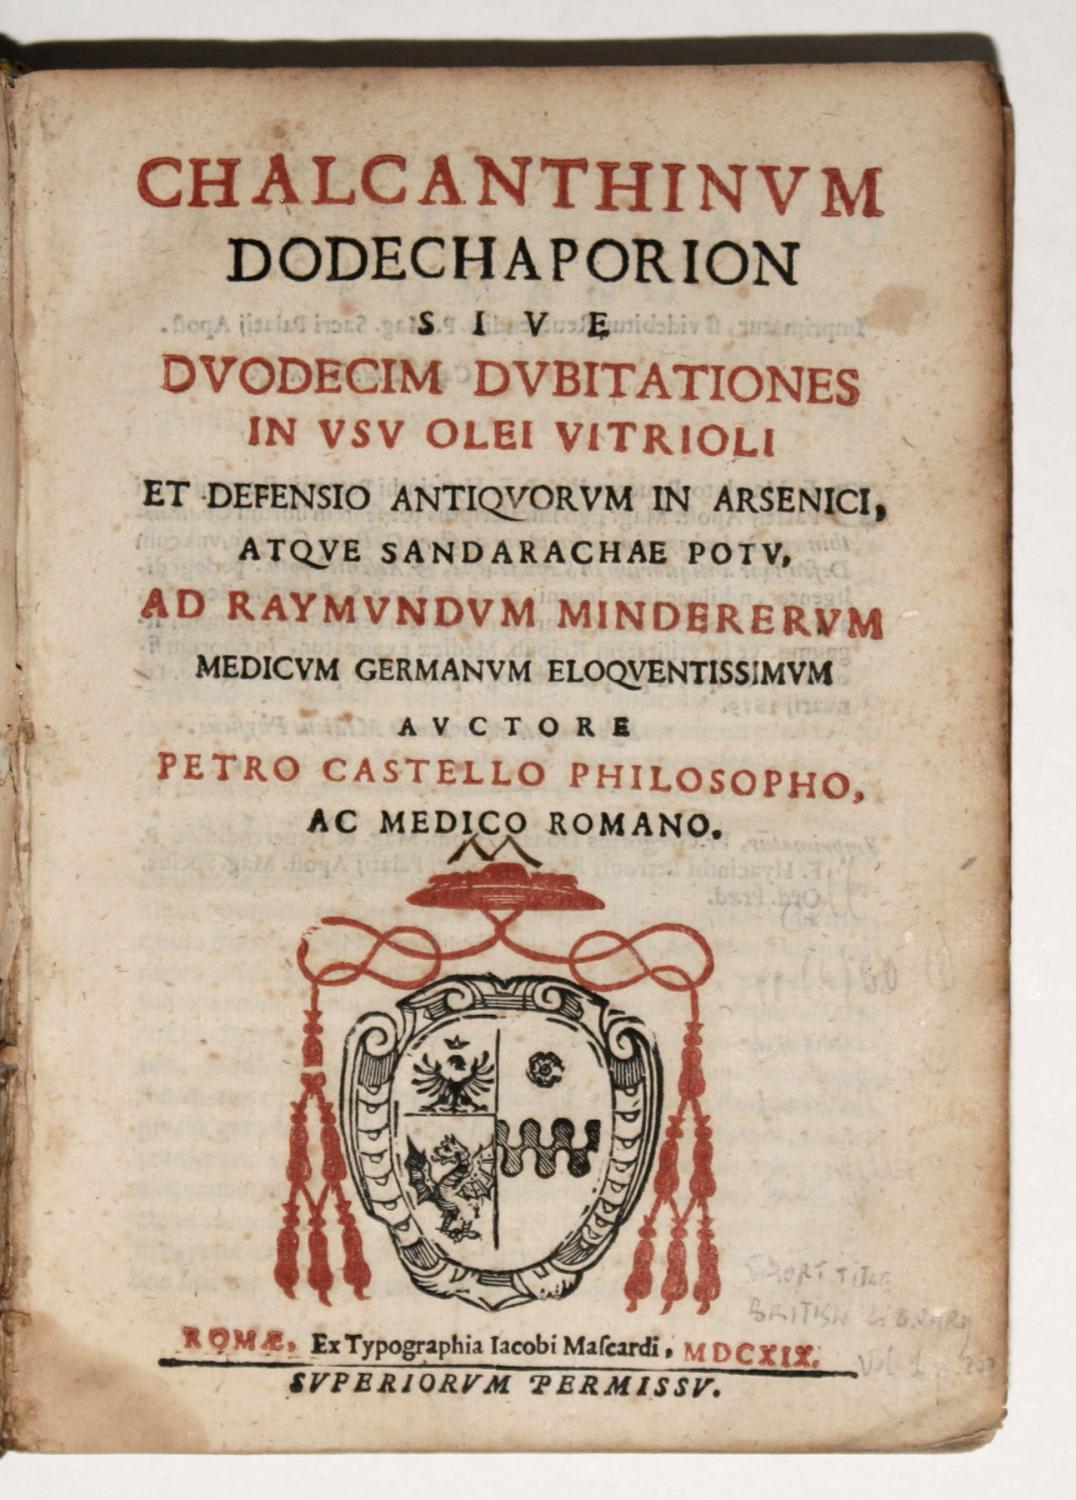 CHALCANTHINVM
DODECHAPORION
SIVE
DVODECIM DVBITATIONES
IN VSV OLEI VITRIOLI
ET DEFENSIO ANTIQVORVM IN ARSENICI,
ATQVE SANDARACHAE POTV,
AD RAYMVNDVM MINDERERVM
MEDICVM GERMANVM ELOQVENTISSIMVM
AVCTORE
PETRO CASTELLO PHILOSOPHO,
AC MEDICO ROMANO.
SHORT TITLE
BRITISH LIBRARY
ROMÆ, Ex Typographia Iacobi Maſcardi, MDCXIX.
Vol 1 p.
SVPERIORVM PERMISSV.